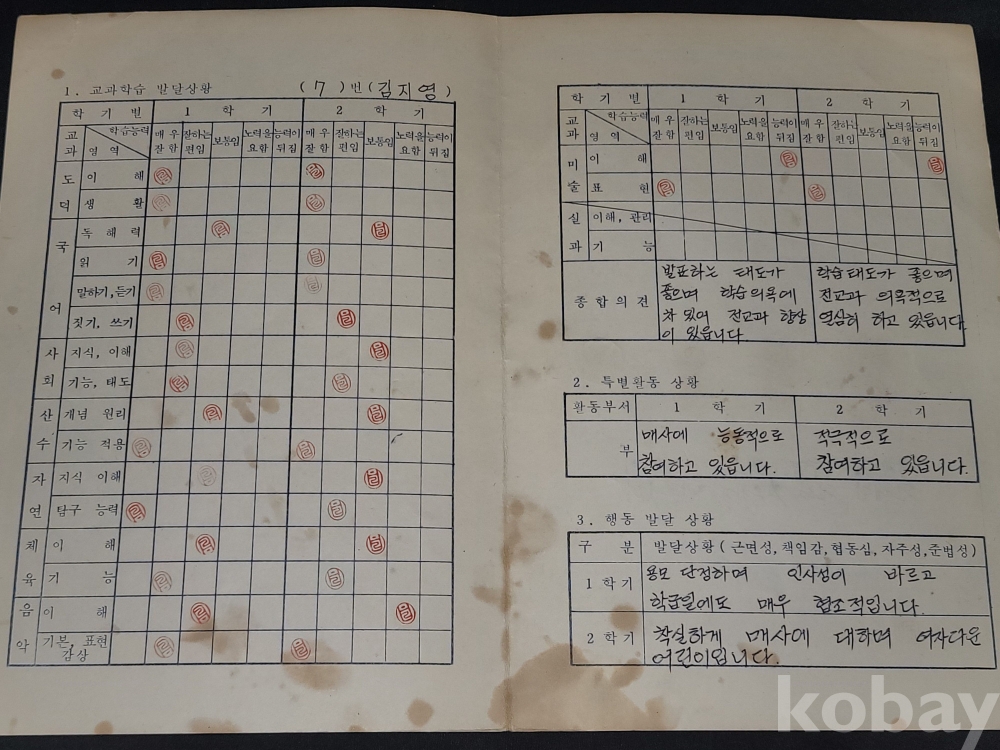 1. 교과학습 발달상황 (7)번(김지영)
학기별 1 학기 2 학기
교과 학습능력 영역 매우잘함 잘하는편임 보통임 노력을요함 능력이뒤짐 매우잘함 잘하는편임 보통임 노력을요함 능력이뒤짐
도덕 이해
생활
국어 독해력
읽기
말하기, 듣기
짓기, 쓰기
사회 지식, 이해
기능, 태도
산수 개념 원리
기능 적용
자연 지식 이해
탐구 능력
체육 이해
기능
음악 이해
기본, 표현
감상
학기별 1 학기 2 학기
교과 학습능력 영역 매우잘함 잘하는편임 보통임 노력을요함 능력이뒤짐 매우잘함 잘하는편임 보통임 노력을요함 능력이뒤짐
미술 이해
표현
실과 이해, 관리
기능
종합의견
발표하는 태도가
좋으며 학습의욕에
차 있어 전교과 향상
이 있읍니다.
학습태도가 좋으며
전교과 의욕적으로
열심히 하고 있읍니다.
2. 특별활동 상황
활동부서 1 학기 2 학기
부
매사에 능동적으로
참여하고 있읍니다.
적극적으로
참여하고 있읍니다.
3. 행동 발달 상황
구분 발달상황(근면성,책임감,협동심,자주성,준법성)
1학기 용모 단정하며 인사성이 바르고
학급일에도 매우 협조적입니다.
2학기 착실하게 매사에 대하며 여자다운
어린이입니다.
kobay